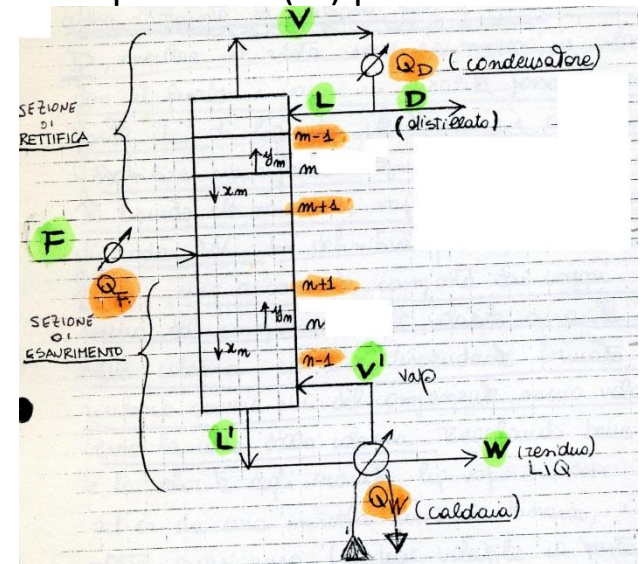 V
QD (condensatore)
L D
(distillato)
SEZIONE
DI
RETTIFICA
m-1
ym
m
xm
m+1
F
QF
n+1
SEZIONE
DI
ESAURIMENTO
yn
n
xn
n-1
V' vap
L'
W (residuo)
LIQ
QW (caldaia)